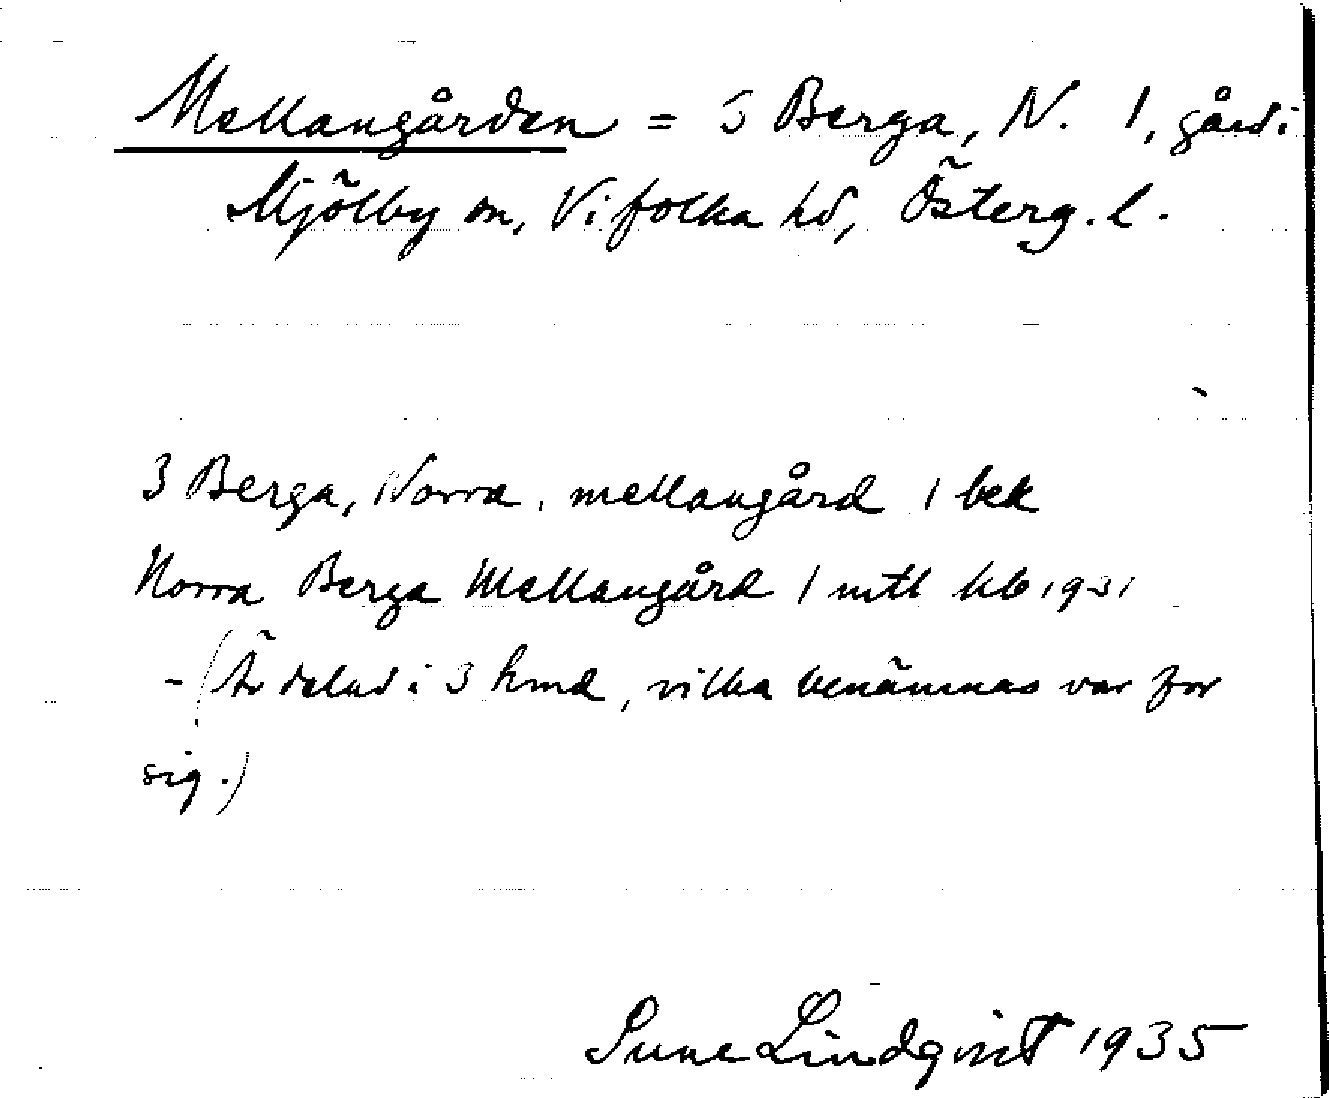 Mellangården = 3 Berga, N. 1, gård i
Mjölby sn, Vifolka hd, Österg. l.
3 Berga, Norra, mellangård 1 bek
Norra Berga Mellangård 1 mtl kb 1931
- (Är delad i 3 hmd, vilka benämnas var för
sig.)
Sune Lindqvist 1935